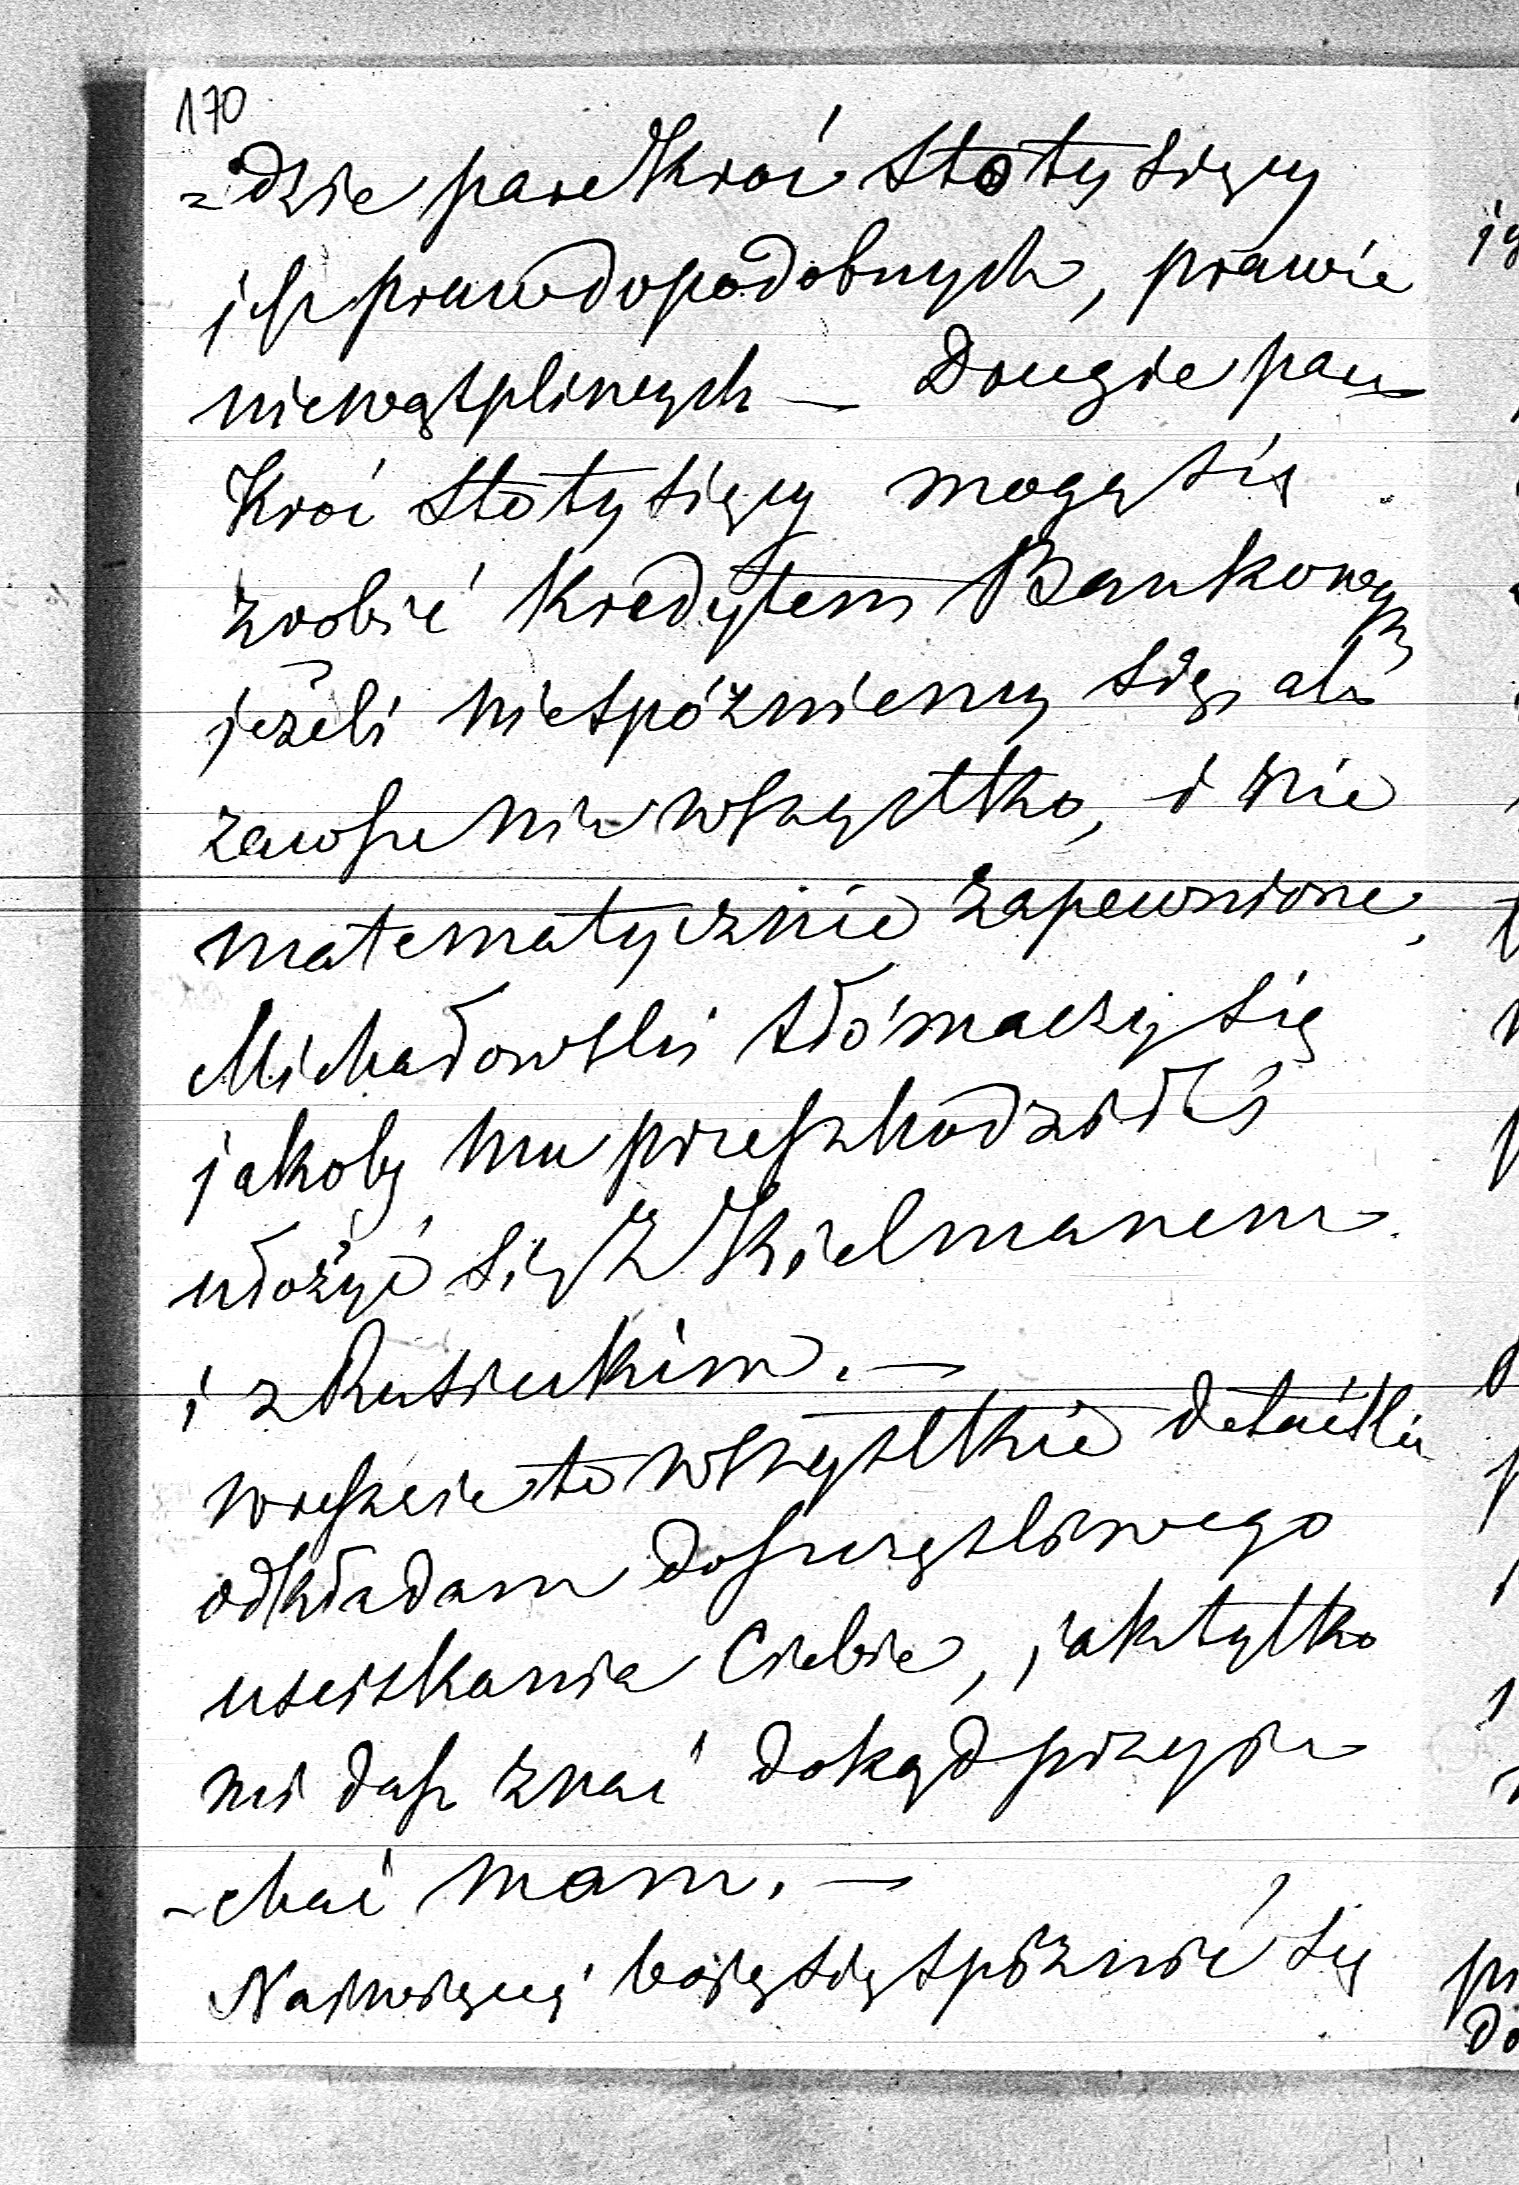 170
=dzie parekroć stotysięcy
jest prawdopodobnych, prawie
niewątpliwych — Drugie parę
kroć stotysięcy mogą się
zrobić kredytem Bankowym
jeżeli niespóźniemy się, ale
zawsze nie wszystko, i nie
matematycznie zapewnione,
Michałowski tłómaczy się
jakoby mu przeszkodziłeś
ułożyć się z Kielmanem
i z Rusieckim. —
wreszcie te wszystkie
odkładam do szczęśliwego
usciskania Ciebie, jak tylko
mi dasz znać dokąd przyje
-chać mam. —
Najwięcej boję się spóźnić się